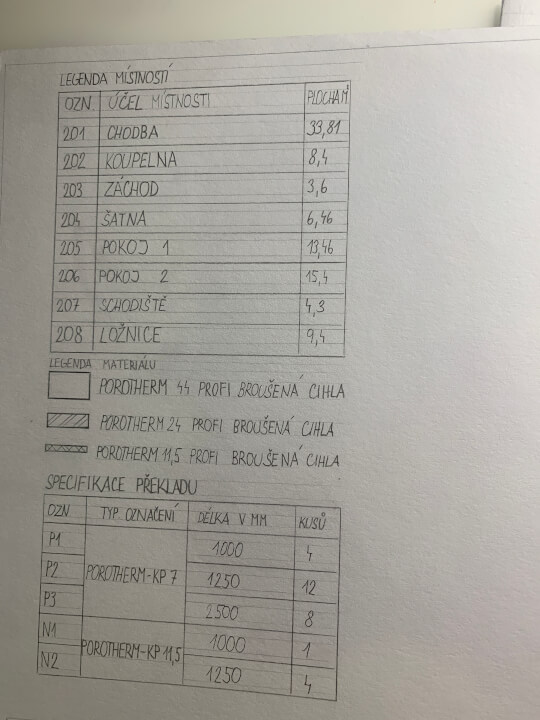 LEGENDA MÍSTNOSTÍ
OZN. ÚČEL MÍSTNOSTI PLOCHA M²
201 CHODBA 33,81
202 KOUPELNA 8,4
203 ZÁCHOD 3,6
204 ŠATNA 6,46
205 POKOJ 1 13,46
206 POKOJ 2 15,4
207 SCHODIŠTĚ 4,3
208 LOŽNICE 9,4
LEGENDA MATERIÁLU
POROTHERM 44 PROFI BROUŠENÁ CIHLA
POROTHERM 24 PROFI BROUŠENÁ CIHLA
POROTHERM 11,5 PROFI BROUŠENÁ CIHLA
SPECIFIKACE PŘEKLADU
OZN TYP. OZNAČENÍ DÉLKA V MM KUSŮ
P1 POROTHERM-KP 7 1000 4
P2 1250 12
P3 2500 8
N1 POROTHERM-KP 11,5 1000 1
N2 1250 4